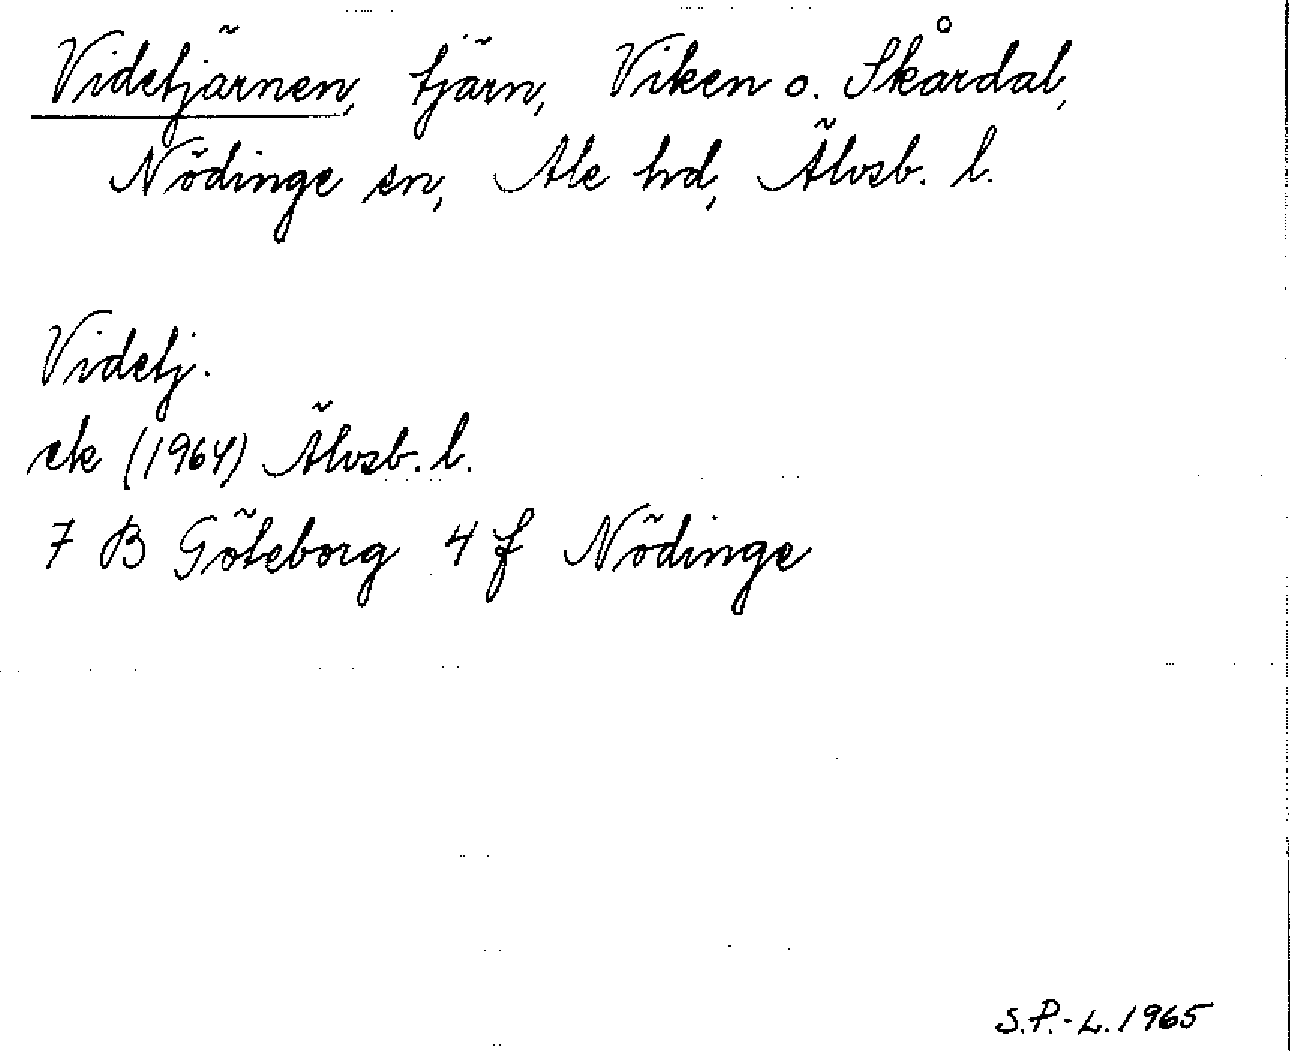 Videtjärnen, tjärn, Viken o. Skårdal,
Nödinge sn, Ale hd, Älvsb. l.
Videtj.
ek (1964) Älvsb. l.
7 B Göteborg 4 f Nödinge
S.P.-L. 1965